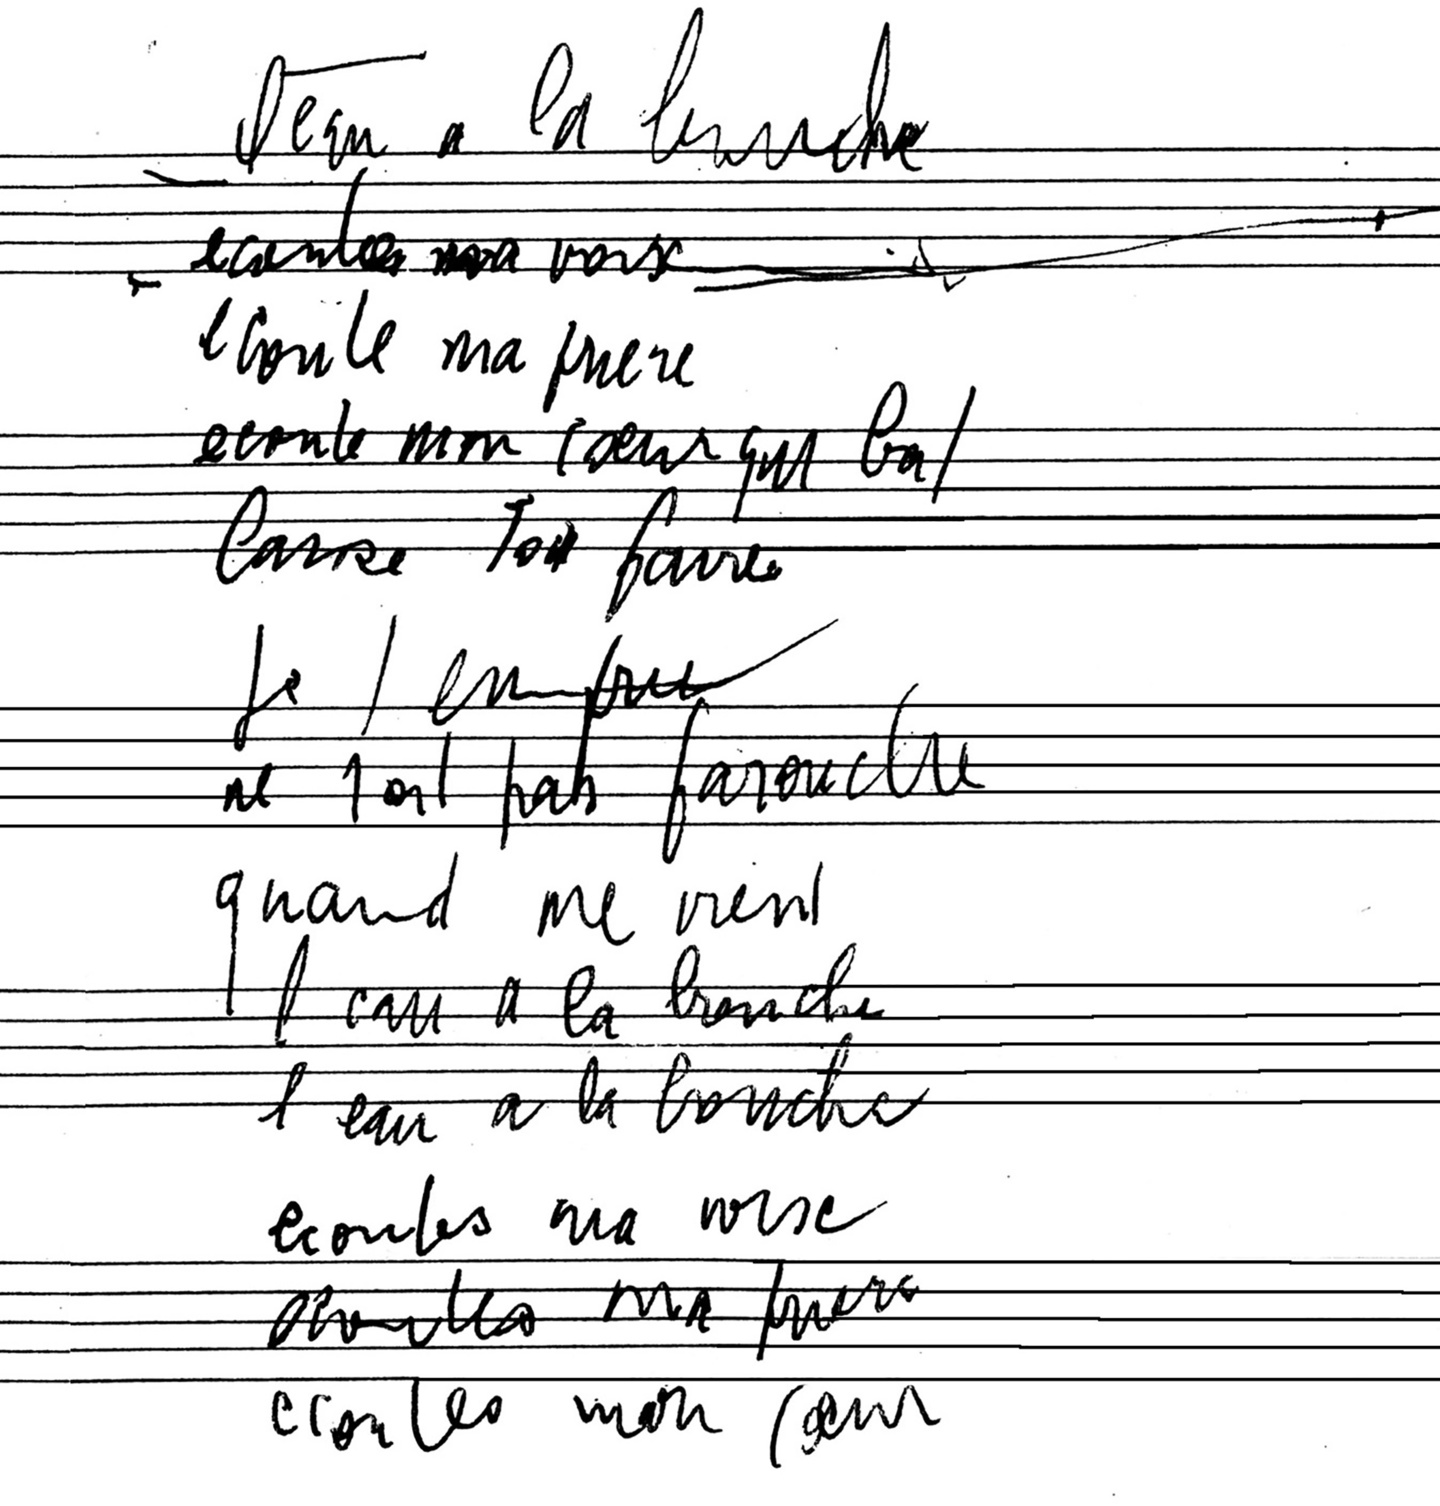 l'eau a la bouche
ecoutes ma voix
ecoute ma priere
ecoute mon cœur qui bat
laisse toi faire
je t en prie
ne soit pas farouche
quand me vient
l eau a la bouche
l eau a la bouche
ecoutes ma voix
ecoutes ma priere
ecoutes mon cœur